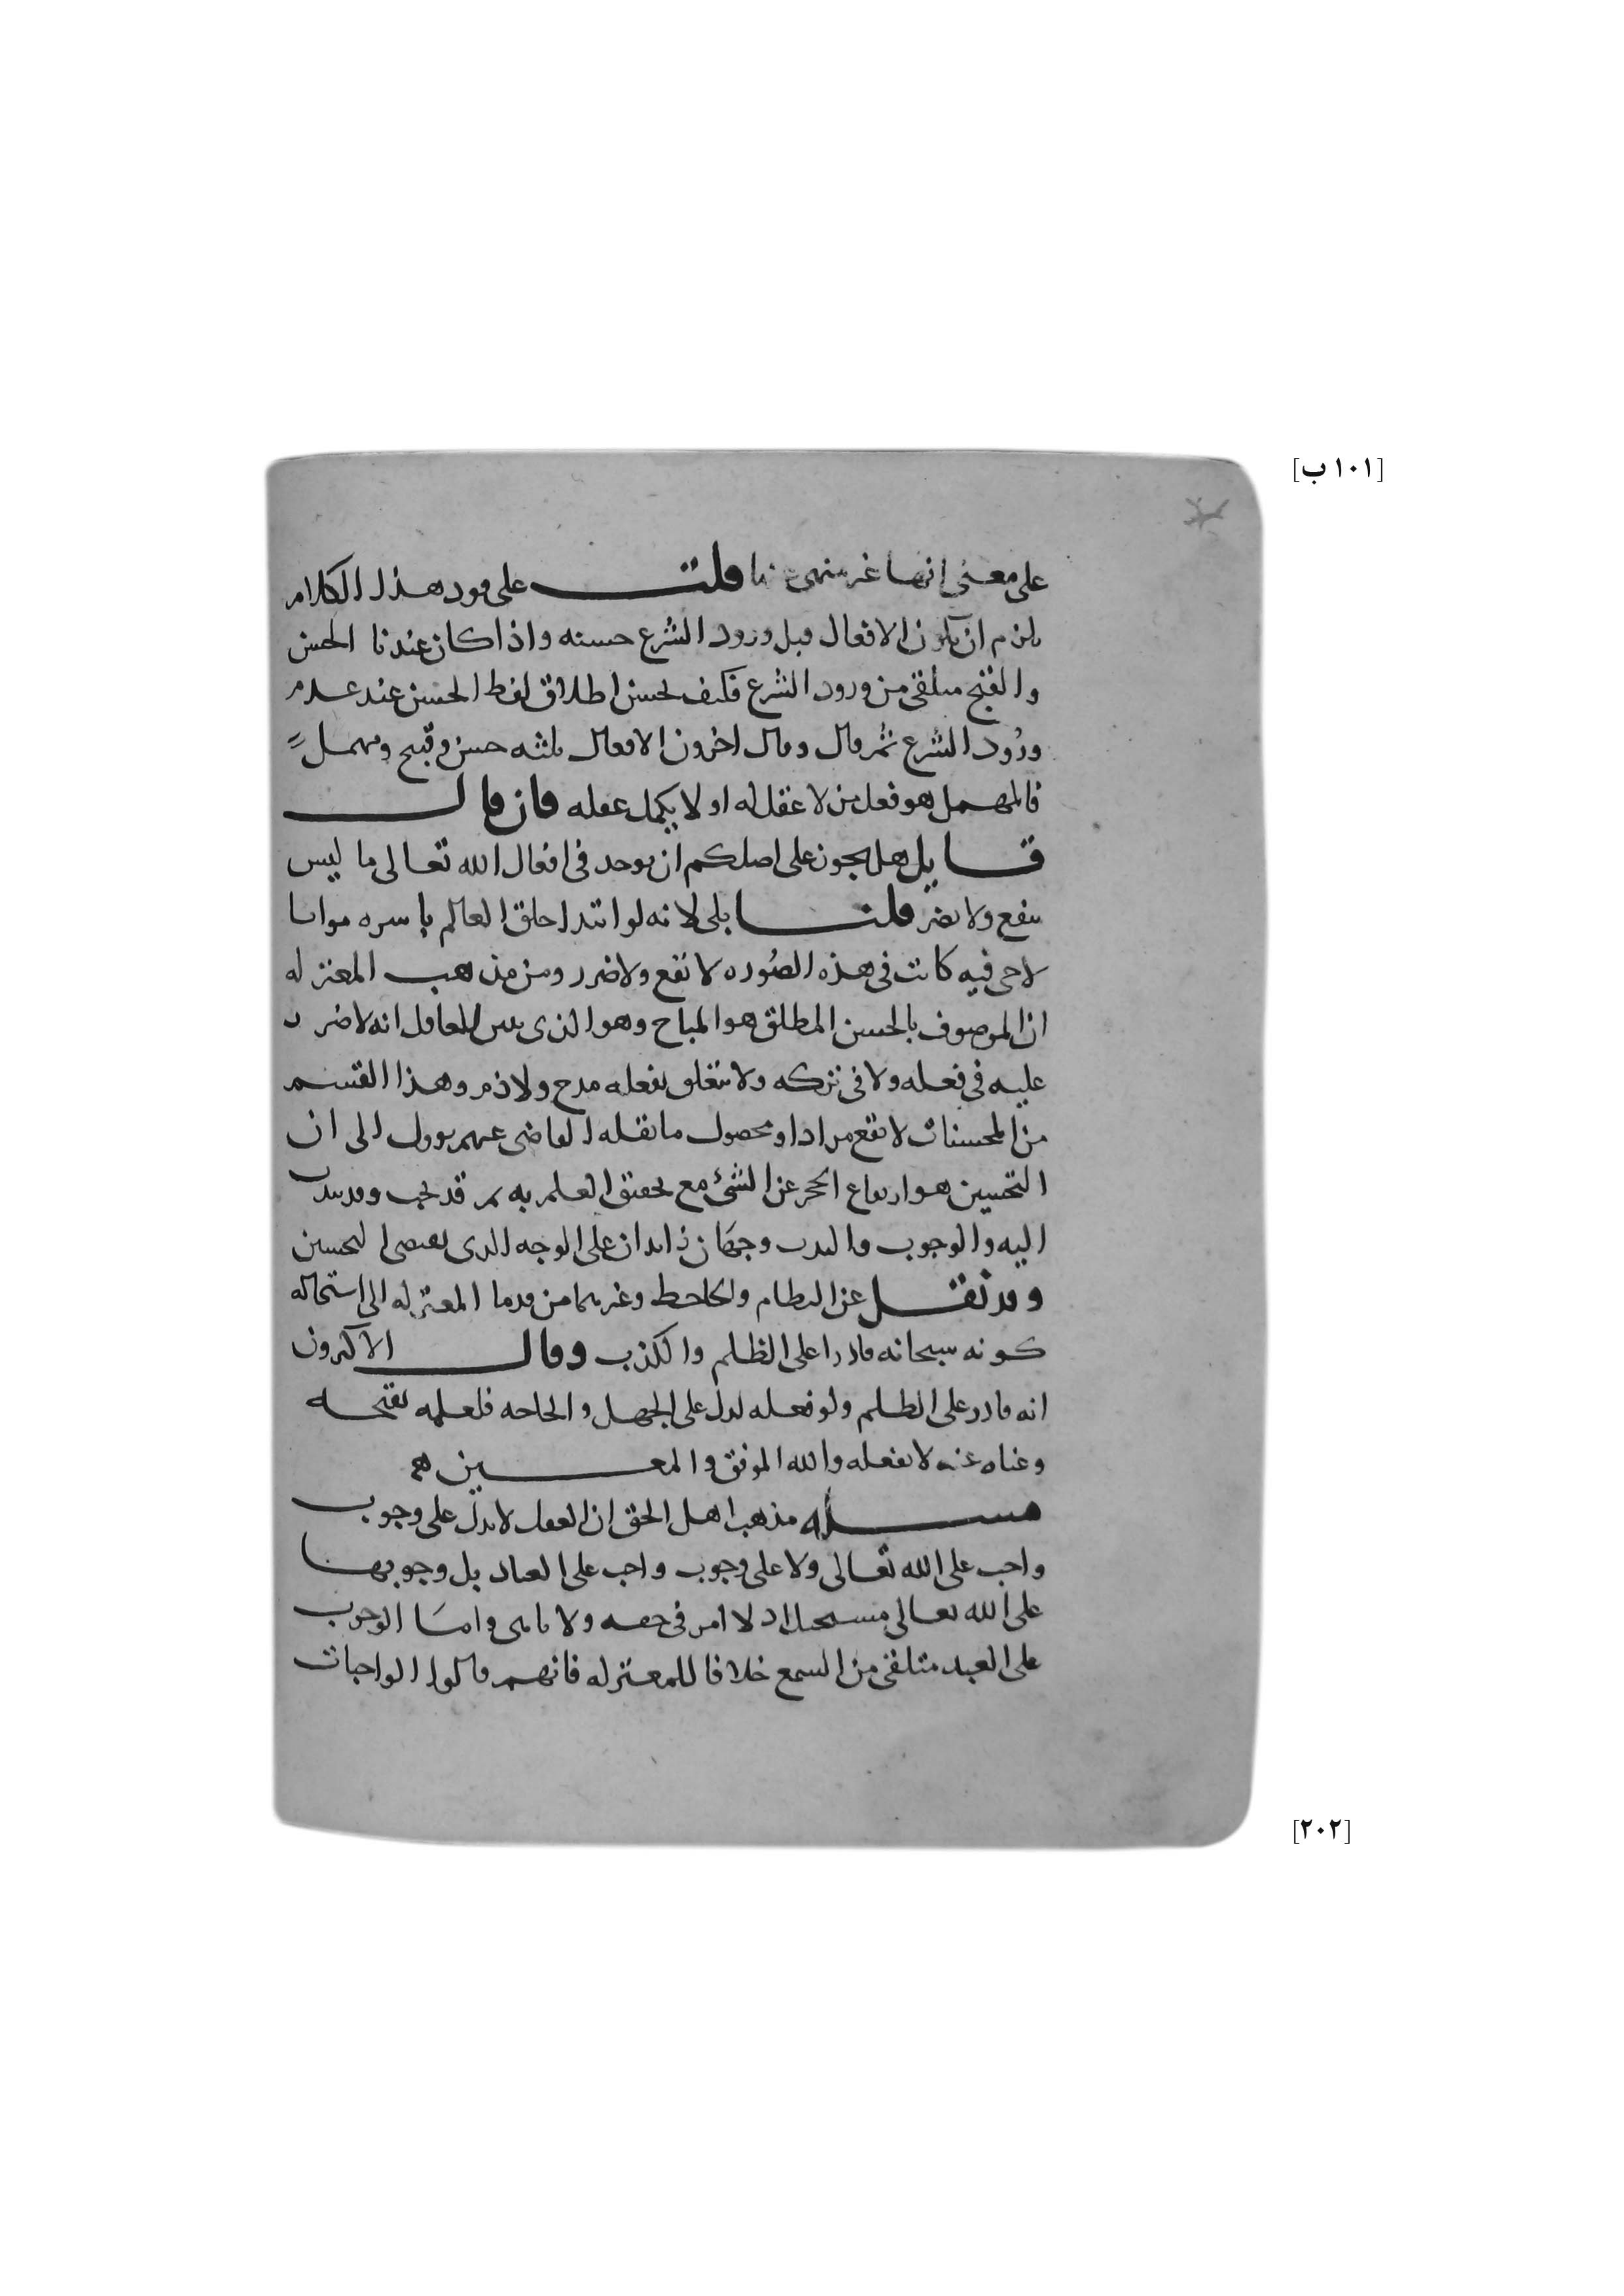 [١٠١ ب]
على معنى انها غير منهى عنها قلت على قود هذا الكلام
يلزم ان يكون الافعال قبل ورود الشرع حسنه واذا كان عندنا الحسن
والقبح متلقى من ورود الشرع فكيف يحسن اطلاق لفظ الحسن عند عدم
ورود الشرع ثم قال وقال اخرون الافعال ثلثه حسن وقبيح ومهمل
فالمهمل هو فعل من لا عقل له او لا يكمل عقله فان قال
قايل هل يجوز على اصلكم ان يوجد فى افعال الله تعالى ما ليس
بنفع ولا بضر قلنا بلى لانه لو ابتدا خلق العالم باسره مواتا
لا حى فيه كانت فى هذه الصوره لا نفع ولا ضرر ومن مذهب المعتزله
ان الموصوف بالحسن المطلق هو المباح وهو الذى يتبين للعاقل انه لا ضرر
عليه فى فعله ولا فى تركه ولا يتعلق بفعله مدح ولا ذم وهذا القسم
من المحسنات لا تقع مرادا ومحصول ما نقله القاضى عنهم يوول الى ان
التحسين هو ارتفاع الحجر عن الشئ مع تحقق العلم به ثم قد يجب وقد يندب
اليه والوجوب والندب وجهان زايدان على الوجه الذى يقتضى التحسين
وقد نقل عن النظام والجاحظ وغيرهما من قدما المعتزله الى استحاله
كونه سبحانه قادرا على الظلم والكذب وقال الاكثرون
انه قادر على الظلم ولو فعله لدل على الجهل والحاجه فلعلمه بقبحه
وغناه عنه لا يفعله والله الموفق والمعين
مسله مذهب اهل الحق ان العقل لا يدل على وجوب
واجب على الله تعالى ولا على وجوب واجب على العباد بل وجوبها
على الله تعالى مستحيل اذ لا امر فى حقه ولا ناهى واما الوجوب
على العبد متلقى من السمع خلافا للمعتزله فانهم قالوا الواجبات
[٢٠٢]